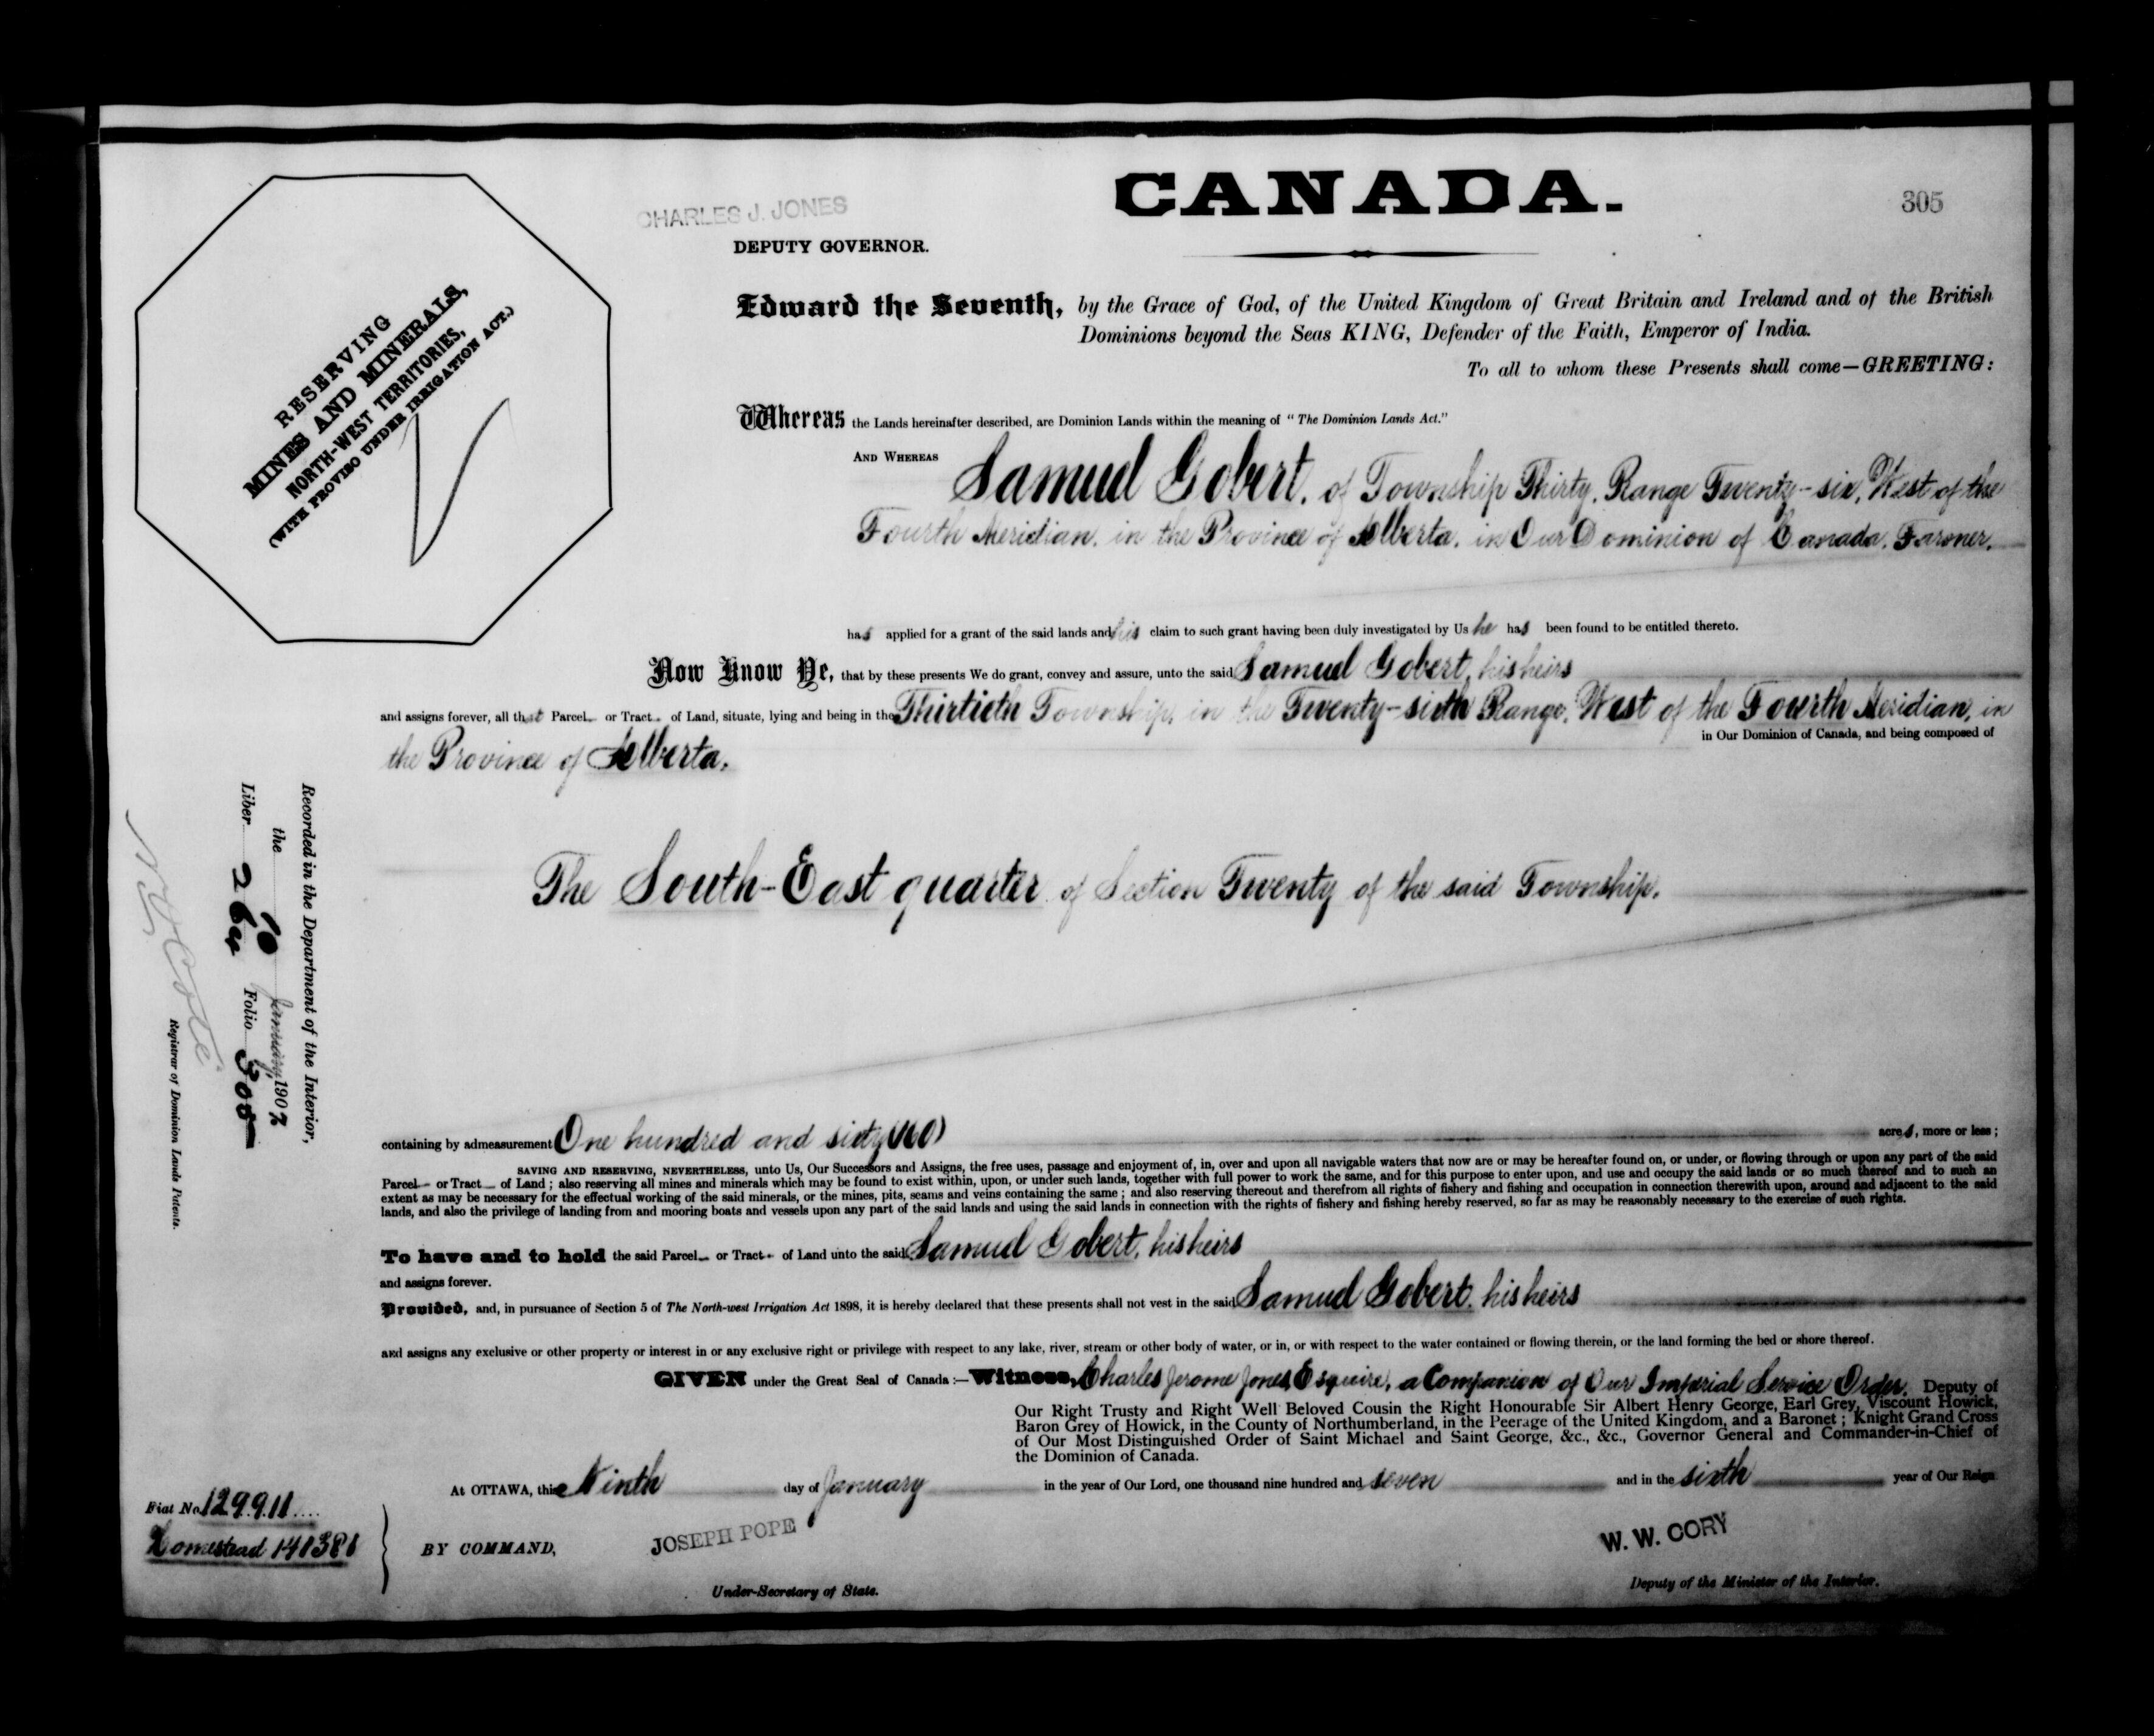 CANADA.
305
CHARLES J. JONES
DEPUTY GOVERNOR.
RESERVING
MINES AND MINERALS,
NORTH-WEST TERRITORIES,
(WITH PROVISO UNDER IRRIGATION ACT.)
Edward the Seventh, by the Grace of God, of the United Kingdom of Great Britain and Ireland and of the British
Dominions beyond the Seas KING, Defender of the Faith, Emperor of India.
To all to whom these Presents shall come—GREETING:
Whereas the Lands hereinafter described, are Dominion Lands within the meaning of "The Dominion Lands Act."
AND WHEREAS Samuel Gobert, of Township Thirty, Range Twenty-six, West of the
Fourth Meridian, in the Province of Alberta, in Our Dominion of Canada, Farmer,
has applied for a grant of the said lands and his claim to such grant having been duly investigated by Us he has been found to be entitled thereto.
Now Know Ye, that by these presents We do grant, convey and assure, unto the said Samuel Gobert, his heirs
and assigns forever, all that Parcel or Tract of Land, situate, lying and being in the Thirtieth Township, in the Twenty-sixth Range, West of the Fourth Meridian, in
the Province of Alberta, in Our Dominion of Canada, and being composed of
The South-East quarter of Section Twenty of the said Township.
containing by admeasurement One hundred and sixty (160) acres, more or less;
SAVING AND RESERVING, NEVERTHELESS, unto Us, Our Successors and Assigns, the free uses, passage and enjoyment of, in, over and upon all navigable waters that now are or may be hereafter found on, or under, or flowing through or upon any part of the said
Parcel or Tract of Land; also reserving all mines and minerals which may be found to exist within, upon, or under such lands, together with full power to work the same, and for this purpose to enter upon, and use and occupy the said lands or so much thereof and to such an
extent as may be necessary for the effectual working of the said minerals, or the mines, pits, seams and veins containing the same; and also reserving thereout and therefrom all rights of fishery and fishing and occupation in connection therewith upon, around and adjacent to the said
lands, and also the privilege of landing from and mooring boats and vessels upon any part of the said lands and using the said lands in connection with the rights of fishery and fishing hereby reserved, so far as may be reasonably necessary to the exercise of such rights.
To have and to hold the said Parcel or Tract of Land unto the said Samuel Gobert, his heirs
and assigns forever.
Provided, and, in pursuance of Section 5 of The North-west Irrigation Act 1898, it is hereby declared that these presents shall not vest in the said Samuel Gobert, his heirs
and assigns any exclusive or other property or interest in or any exclusive right or privilege with respect to any lake, river, stream or other body of water, or in, or with respect to the water contained or flowing therein, or the land forming the bed or shore thereof.
GIVEN under the Great Seal of Canada:—Witness, Charles Jerome Jones, Esquire, a Companion of Our Imperial Service Order, Deputy of
Our Right Trusty and Right Well Beloved Cousin the Right Honourable Sir Albert Henry George, Earl Grey, Viscount Howick,
Baron Grey of Howick, in the County of Northumberland, in the Peerage of the United Kingdom, and a Baronet; Knight Grand Cross
of Our Most Distinguished Order of Saint Michael and Saint George, &c., &c., Governor General and Commander-in-Chief of
the Dominion of Canada.
At OTTAWA, this Ninth day of January in the year of Our Lord, one thousand nine hundred and seven and in the sixth year of Our Reign
BY COMMAND,
JOSEPH POPE
Under-Secretary of State.
W. W. CORY
Deputy of the Minister of the Interior.
Fiat No. 129911
Homestead 141381
Recorded in the Department of the Interior,
the 10 January, 1907
Liber 264 Folio 305
Registrar of Dominion Lands Patents.